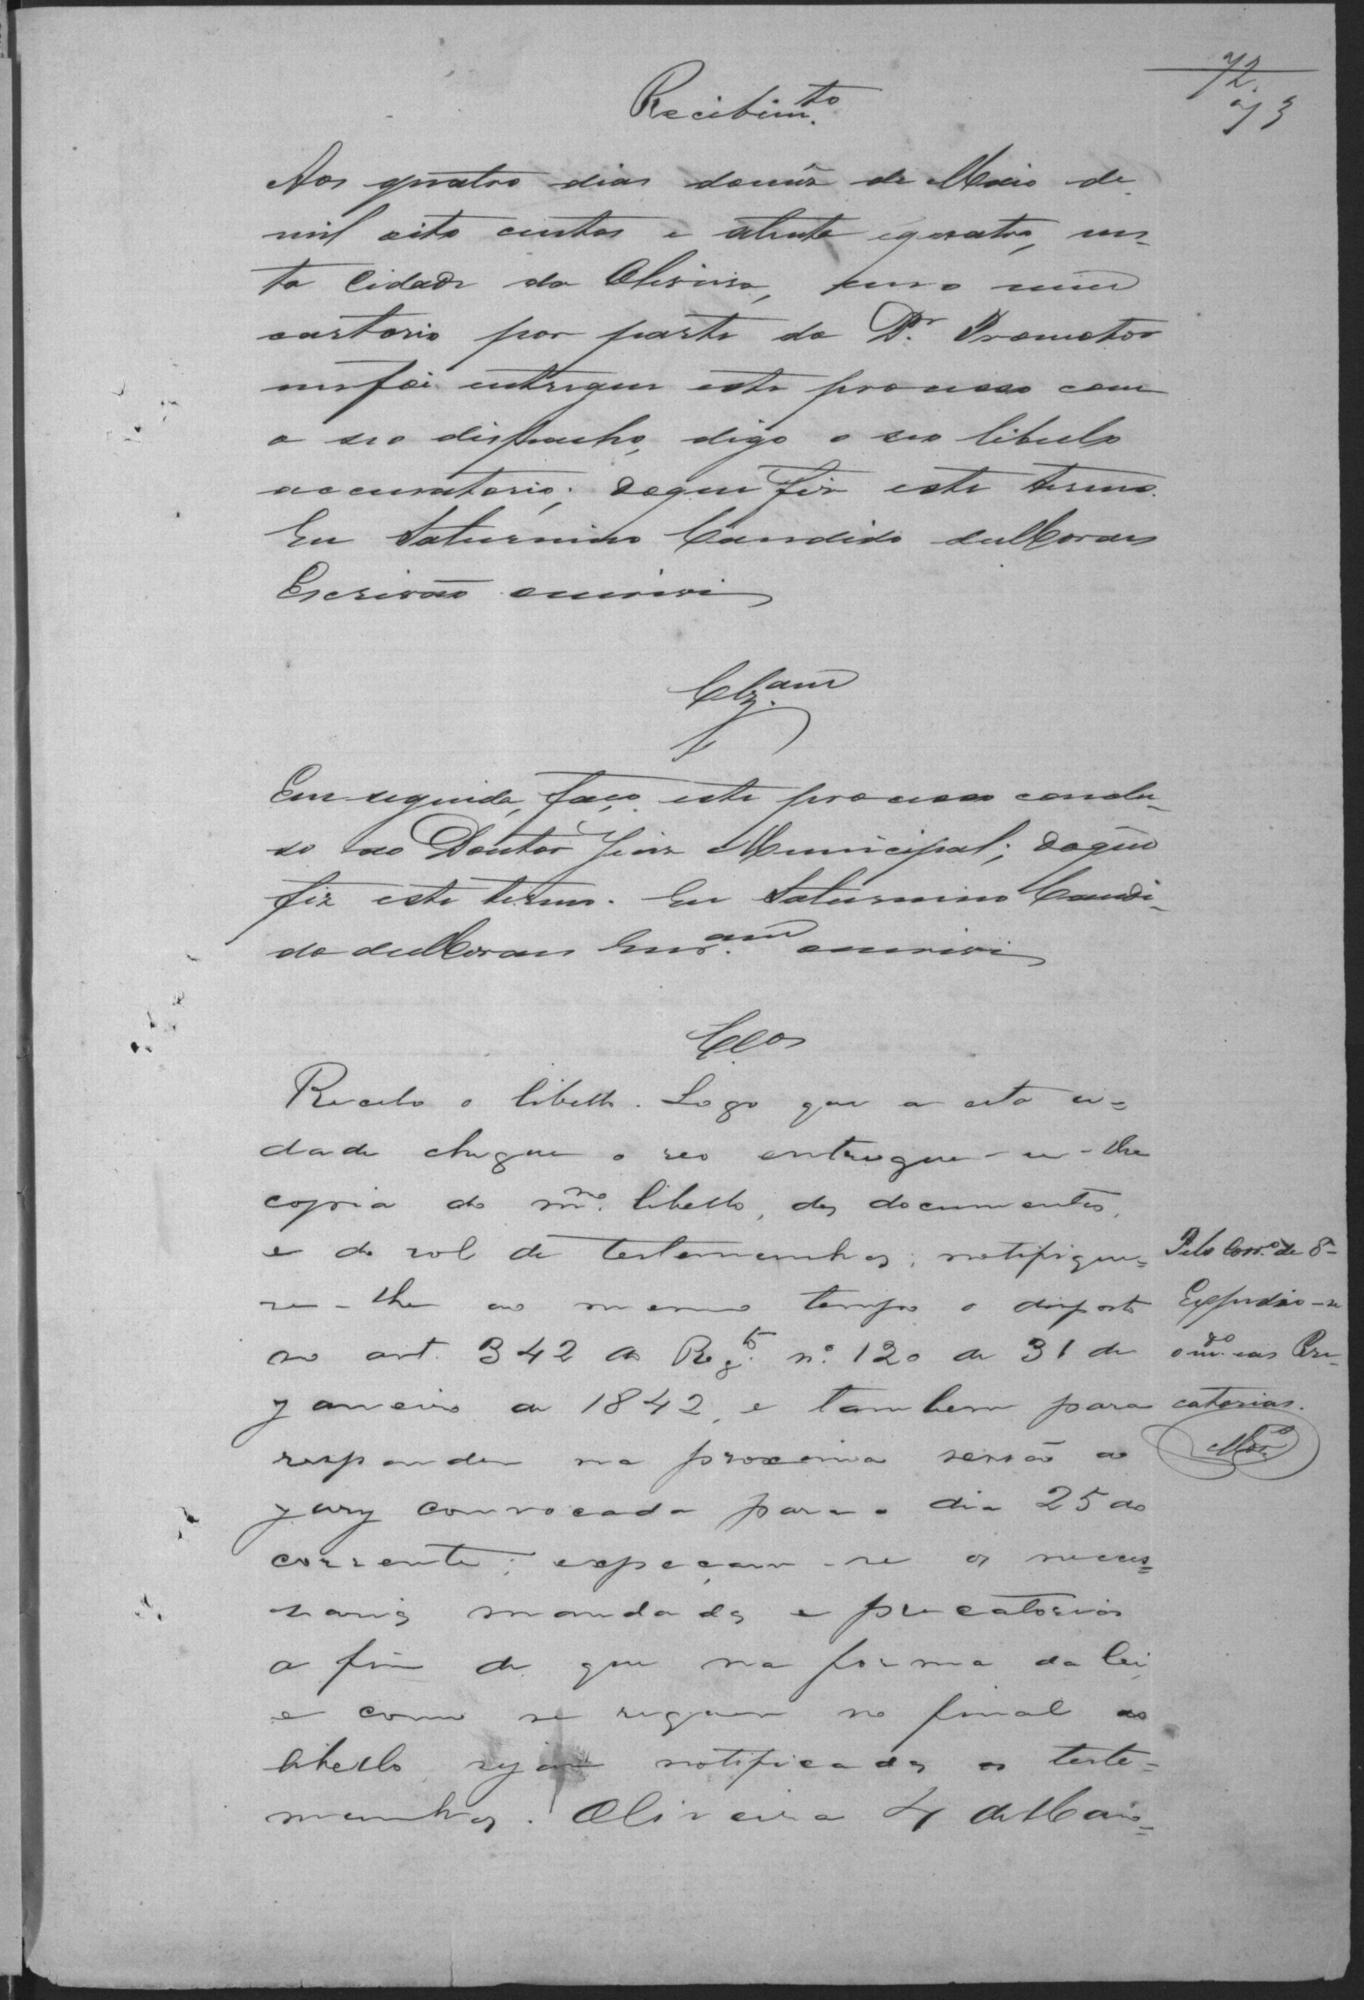 72.
73
Recibim.to
Aos quatro dias do mez de Maio de
mil oito centos e oitenta e quatro, nes-
ta Cidade da Oliveira, em o meu
cartorio por parte do Dr. Promotor
me foi entregue este processo com
o seo despacho, digo o seo libello
accusatorio; do que fiz este termo.
Eu Saturnino Candido de Moraes
Escrivão escrevi
Clz.am
Em seguida, faço este processo conclu-
so ao Doutor Juiz Municipal; do que
fiz este termo. Eu Saturnino Candi-
do de Moraes Escr.am escrevi
Clos
Recebo o libello. Logo que a esta ci-
dade chegue o reo entregue-se-lhe
copia do m.mo libello, dos documentos,
e do rol de testemunhas; notifique-
se-lhe ao mesmo tempo o disposto
no art. 342 do Reg.to nº 120 de 31 de
Janeiro de 1842, e tambem para
responder na proxima sessão do
jury convocada para o dia 25 do
corrente; expeçam-se os neces-
sarios mandados e precatorias
a fim de que na forma da lei
e como se requer no final do
libello sejam notificadas as teste-
munhas. Oliveira 4 de Maio-
Pelo Corr.º de 8-
Expedirão-se
as Pre-
catorias.
Mor.